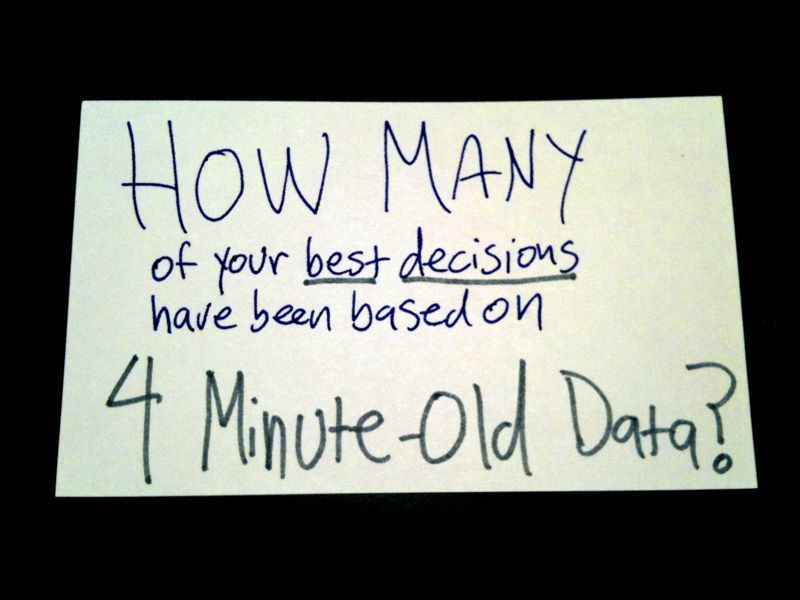 HOW MANY
of your best decisions
have been based on
4 Minute-Old Data?